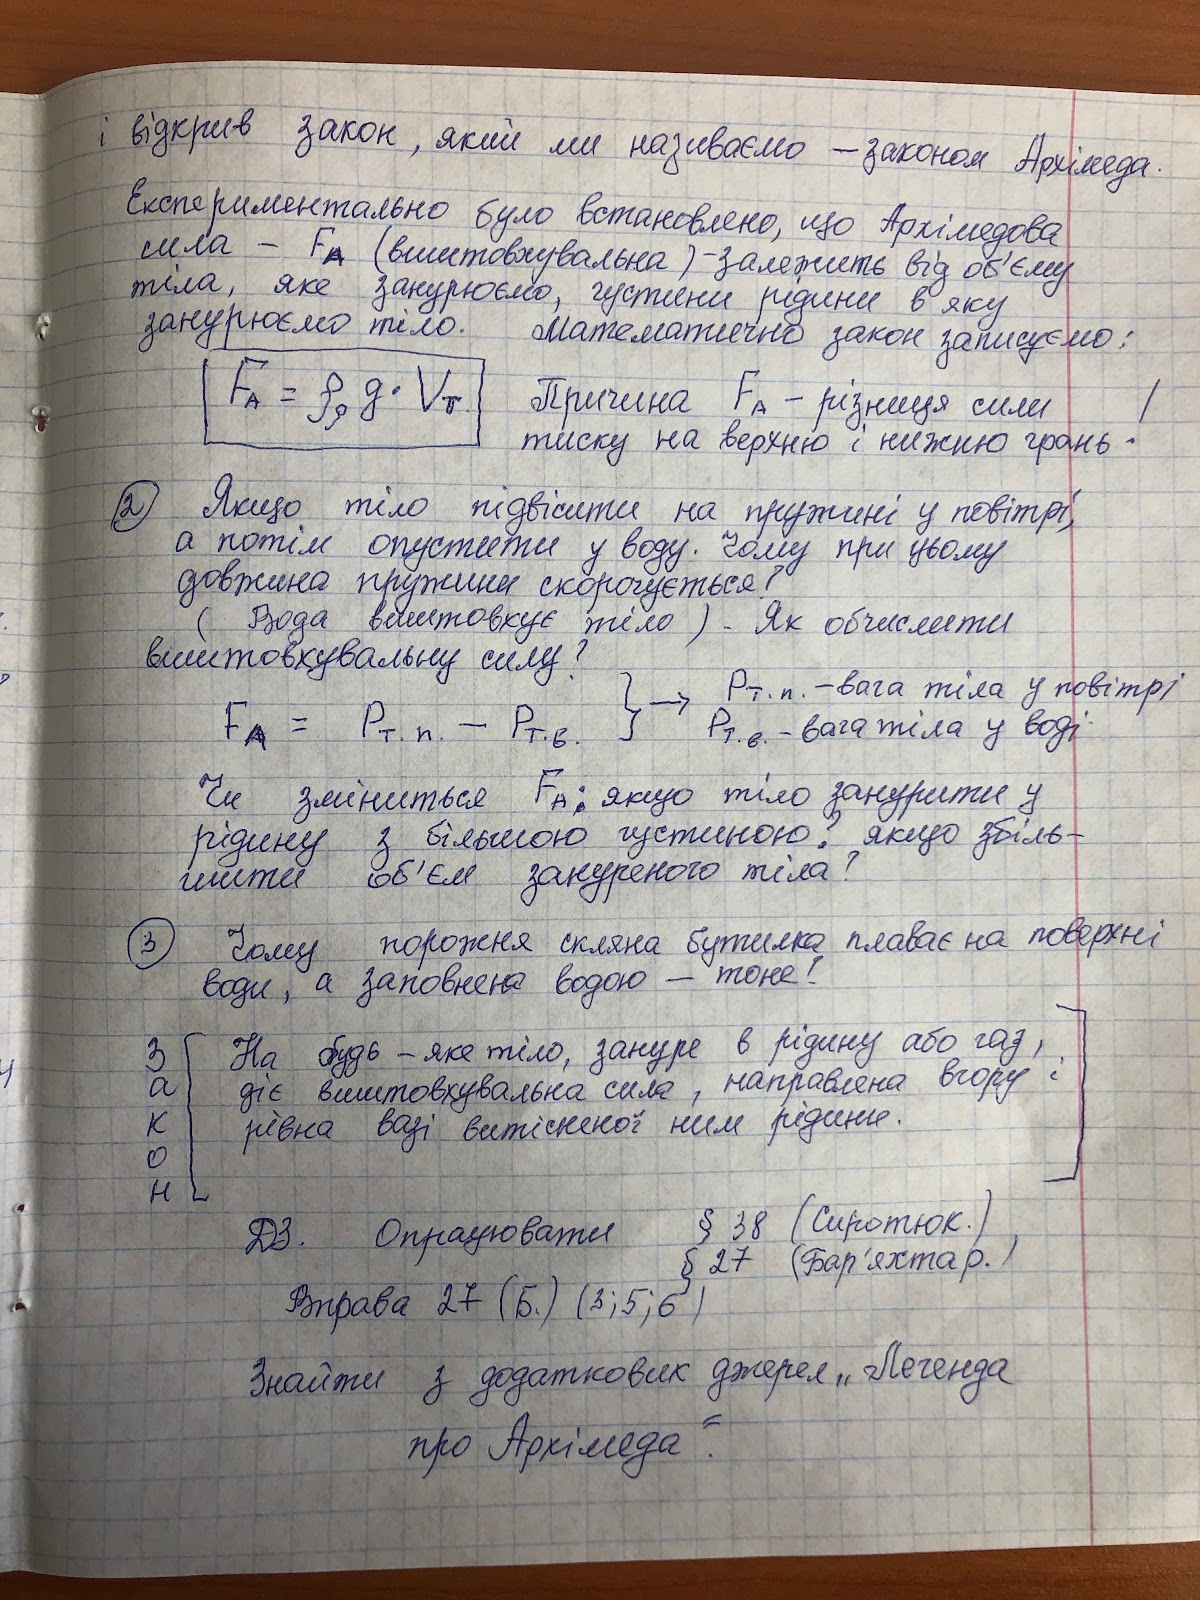 і відкрив закон, який ми називаємо – законом Архімеда.
Експериментально було встановлено, що Архімедова
сила – FA (виштовхувальна) – залежить від об'єму
тіла, яке занурюємо, густини рідини в яку
занурюємо тіло. Математично закон записуємо:
FA = ρр g · Vт. Причина FA – різниця сили
тиску на верхню і нижню грань.
2 Якщо тіло підвісити на пружині у повітрі,
а потім опустити у воду. Чому при цьому
довжина пружини скорочується?
(Вода виштовхує тіло) – Як обчислити
виштовхувальну силу?
FA = Pт.п. – Pт.в. } → Pт.п. – вага тіла у повітрі
Pт.в. – вага тіла у воді
Чи зміниться FA; якщо тіло занурити у
рідину з більшою густиною? якщо збіль-
шити об'єм зануреного тіла?
3 Чому порожня скляна бутилка плаває на поверхні
води, а заповнена водою – тоне?
Закон [ На будь-яке тіло, зануре в рідину або газ,
діє виштовхувальна сила, направлена вгору і
рівна вазі витісненої ним рідини. ]
ДЗ. Опрацювати § 38 (Сиротюк.),
§ 27 (Бар'яхтар.)
Вправа 27 (Б.) (3; 5; 6)
Знайти з додаткових джерел „Легенда
про Архімеда".